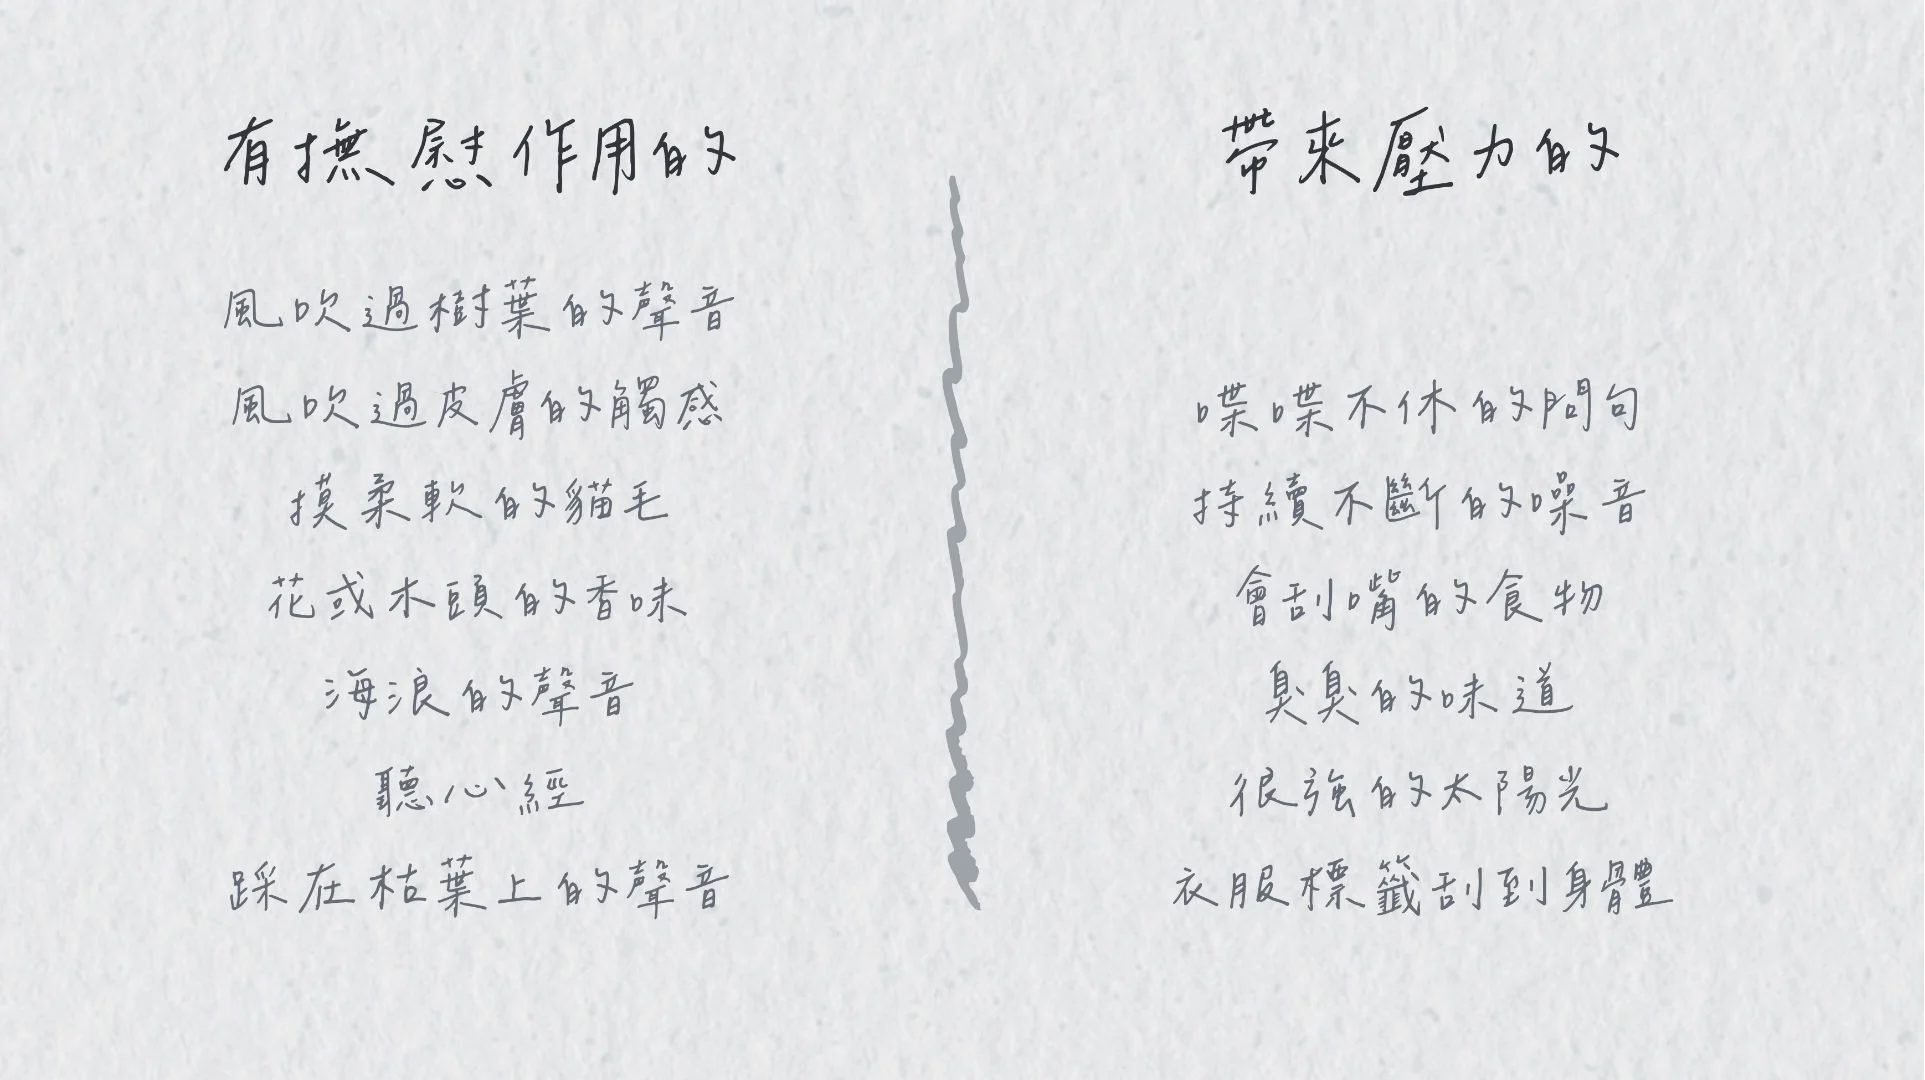 有撫慰作用的
風吹過樹葉的聲音
風吹過皮膚的觸感
摸柔軟的貓毛
花或木頭的香味
海浪的聲音
聽心經
踩在枯葉上的聲音
帶來壓力的
喋喋不休的問句
持續不斷的噪音
會刮嘴的食物
臭臭的味道
很強的太陽光
衣服標籤刮到身體